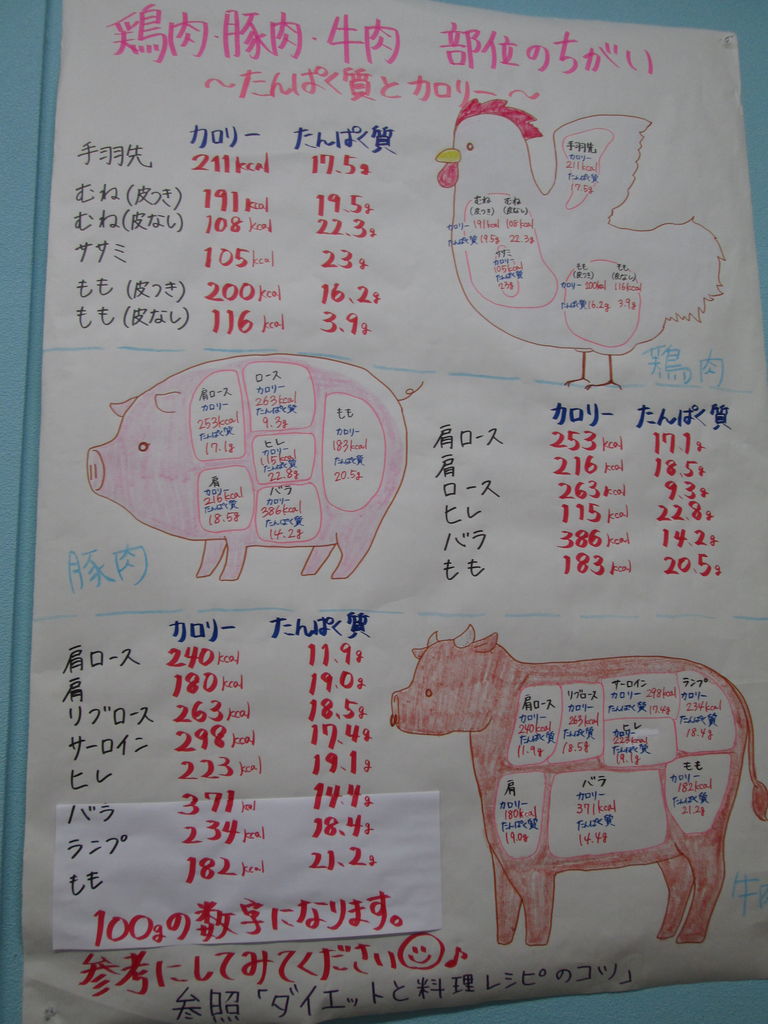 鶏肉・豚肉・牛肉 部位のちがい
～たんぱく質とカロリー～
カロリー たんぱく質
手羽先 211kcal 17.5g
むね(皮つき) 191kcal 19.5g
むね(皮なし) 108kcal 22.3g
ササミ 105kcal 23g
もも(皮つき) 200kcal 16.2g
もも(皮なし) 116kcal 3.9g
手羽先
カロリー
211kcal
たんぱく質
17.5g
むね むね
(皮つき) (皮なし)
カロリー 191kcal 108kcal
たんぱく質 19.5g 22.3g
ササミ
カロリー
105kcal
たんぱく質
23g
もも もも
(皮つき) (皮なし)
カロリー 200kcal 116kcal
たんぱく質 16.2g 3.9g
鶏肉
肩ロース
カロリー
253kcal
たんぱく質
17.1g
ロース
カロリー
263kcal
たんぱく質
9.3g
ヒレ
カロリー
115kcal
たんぱく質
22.8g
もも
カロリー
183kcal
たんぱく質
20.5g
肩
カロリー
216kcal
たんぱく質
18.5g
バラ
カロリー
386kcal
たんぱく質
14.2g
豚肉
カロリー たんぱく質
肩ロース 253kcal 17.1g
肩 216kcal 18.5g
ロース 263kcal 9.3g
ヒレ 115kcal 22.8g
バラ 386kcal 14.2g
もも 183kcal 20.5g
カロリー たんぱく質
肩ロース 240kcal 11.9g
肩 180kcal 19.0g
リブロース 263kcal 18.5g
サーロイン 298kcal 17.4g
ヒレ 223kcal 19.1g
バラ 371kcal 14.4g
ランプ 234kcal 18.4g
もも 182kcal 21.2g
肩ロース
カロリー
240kcal
たんぱく質
11.9g
リブロース
カロリー
263kcal
たんぱく質
18.5g
サーロイン
カロリー 298kcal
たんぱく質 17.4g
ランプ
カロリー
234kcal
たんぱく質
18.4g
ヒレ
カロリー
223kcal
たんぱく質
19.1g
肩
カロリー
180kcal
たんぱく質
19.0g
バラ
カロリー
371kcal
たんぱく質
14.4g
もも
カロリー
182kcal
たんぱく質
21.2g
牛肉
100gの数字になります。
参考にしてみてください♪
参照「ダイエットと料理レシピのコツ」